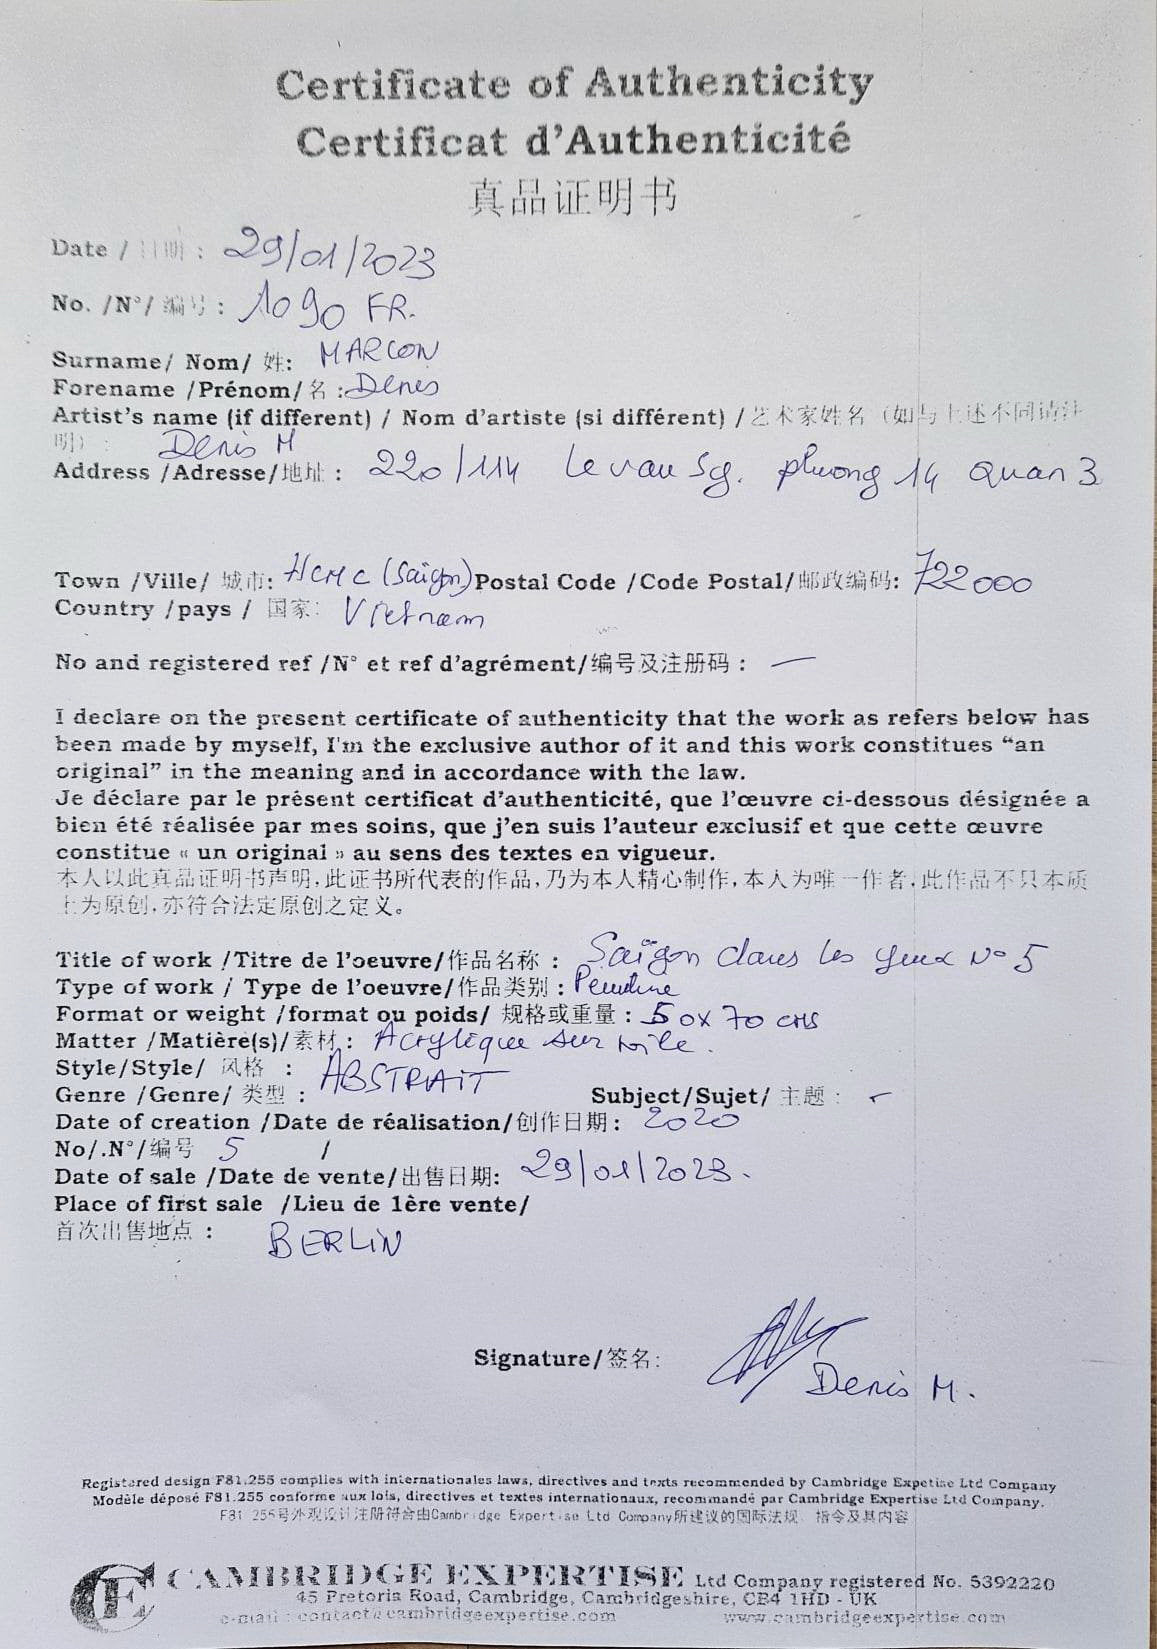 Certificate of Authenticity
Certificat d'Authenticité
真品证明书
Date / 日期 : 29/01/2023
No. /N°/ 编号 : 1090 FR.
Surname/ Nom/ 姓: MARCON
Forename /Prénom/名 :Denis
Artist's name (if different) / Nom d'artiste (si différent) /艺术家姓名（如与上述不同请注
明） : Denis M
Address /Adresse/地址 : 220/114 Le van Sy. phuong 14 Quan 3
Town /Ville/ 城市: HCMC (Saïgon) Postal Code /Code Postal/邮政编码: 722000
Country /pays / 国家: Vietnam
No and registered ref /N° et ref d'agrément/编号及注册码 : —
I declare on the present certificate of authenticity that the work as refers below has
been made by myself, I'm the exclusive author of it and this work constitues “an
original” in the meaning and in accordance with the law.
Je déclare par le présent certificat d'authenticité, que l'œuvre ci-dessous désignée a
bien été réalisée par mes soins, que j'en suis l'auteur exclusif et que cette œuvre
constitue « un original » au sens des textes en vigueur.
本人以此真品证明书声明,此证书所代表的作品,乃为本人精心制作,本人为唯一作者,此作品不只本质
上为原创,亦符合法定原创之定义。
Title of work /Titre de l'oeuvre/作品名称 : Saïgon dans les yeux N° 5
Type of work / Type de l'oeuvre/作品类别 : Peinture
Format or weight /format ou poids/ 规格或重量 : 50x70 cms
Matter /Matière(s)/素材 : Acrylique sur toile.
Style/Style/ 风格 : ABSTRAIT
Genre /Genre/ 类型 : Subject/Sujet/ 主题 : -
Date of creation /Date de réalisation/创作日期 : 2020
No/.N°/编号 5 /
Date of sale /Date de vente/出售日期: 29/01/2023.
Place of first sale /Lieu de 1ère vente/
首次出售地点 : BERLIN
Signature/签名:
Denis M.
Registered design F81.255 complies with internationales laws, directives and texts recommended by Cambridge Expetise Ltd Company
Modèle déposé F81.255 conforme aux lois, directives et textes internationaux, recommandé par Cambridge Expertise Ltd Company.
F81 255号外观设计注册符合由Cambridge Expertise Ltd Company所建议的国际法规、指令及其内容
CE CAMBRIDGE EXPERTISE Ltd Company registered No. 5392220
45 Pretoria Road, Cambridge, Cambridgeshire, CB4 1HD - UK
e-mail : contact@cambridgeexpertise.com www.cambridgeexpertise.com